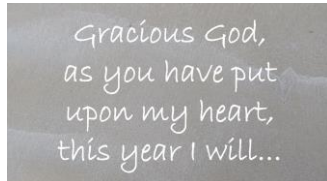 Gracious God,
as you have put
upon my heart,
this year I will...